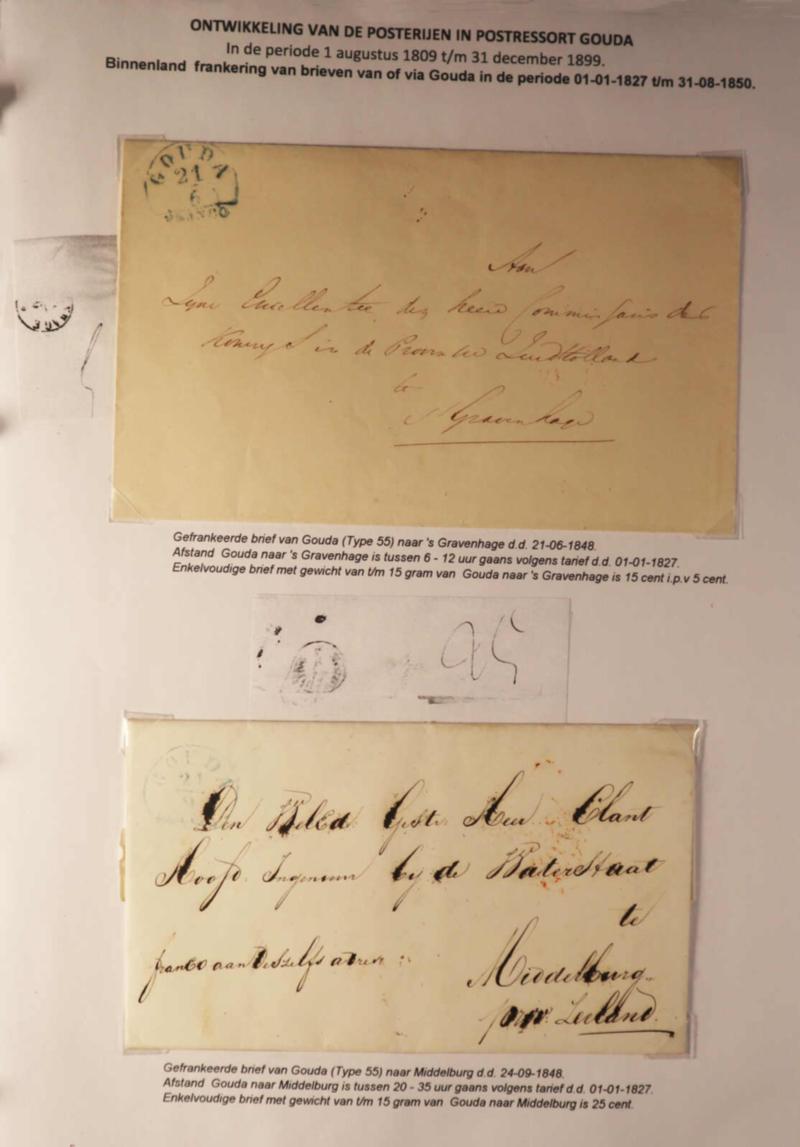 ONTWIKKELING VAN DE POSTERIJEN IN POSTRESSORT GOUDA
In de periode 1 augustus 1809 t/m 31 december 1899.
Binnenland frankering van brieven van of via Gouda in de periode 01-01-1827 t/m 31-08-1850.
GOUDA
21
6
FRANCO
Aan
Zyne Excellentie den heere Commissaris des
Konings in de Provincie Zuidholland
te
's Gravenhage
Gefrankeerde brief van Gouda (Type 55) naar 's Gravenhage d.d. 21-06-1848.
Afstand Gouda naar 's Gravenhage is tussen 6 - 12 uur gaans volgens tarief d.d. 01-01-1827.
Enkelvoudige brief met gewicht van t/m 15 gram van Gouda naar 's Gravenhage is 15 cent i.p.v 5 cent.
Den WelEd Gestr Heer Clant
Hoofd Ingenieur by de WaterStaat
te
franco aan deszelfs adres
Middelburg
prov. Zeeland.
Gefrankeerde brief van Gouda (Type 55) naar Middelburg d.d. 24-09-1848.
Afstand Gouda naar Middelburg is tussen 20 - 35 uur gaans volgens tarief d.d. 01-01-1827.
Enkelvoudige brief met gewicht van t/m 15 gram van Gouda naar Middelburg is 25 cent.